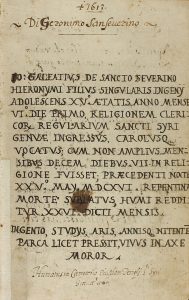 + 1617
Di Geronimo Sanseverino
IO: GALEATIVS DE SANCTO SEVERINO
HIERONYMI FILIVS SINGVLARIS INGENY
ADOLESCENS XV. ÆTATIS, ANNO MENSE
VT. DIE PRIMO RELIGIONEM CLERI
COR. REGVLARIVM SANCTI SYRI
GENVÆ. INGRESSVS, CAROLVSQ.
VOCATVS; CVM NON AMPLIVS MEN
SIBVS DECEM, DIEBVS. VII. IN RELIG
IONE FVISSET, PRÆCEDENTI NOCTE
XXV. MAY, MDCXVII. REPENTINA
MORTE SVBLATVS HVMI REDDI
TVR. XXVI. DICTI MENSIS.
INGENIO, STVDYS, ARIS, ANNISQ, NITENTE
PARCA LICET PRESSIT, VIVVS IN AXE
MOROR.